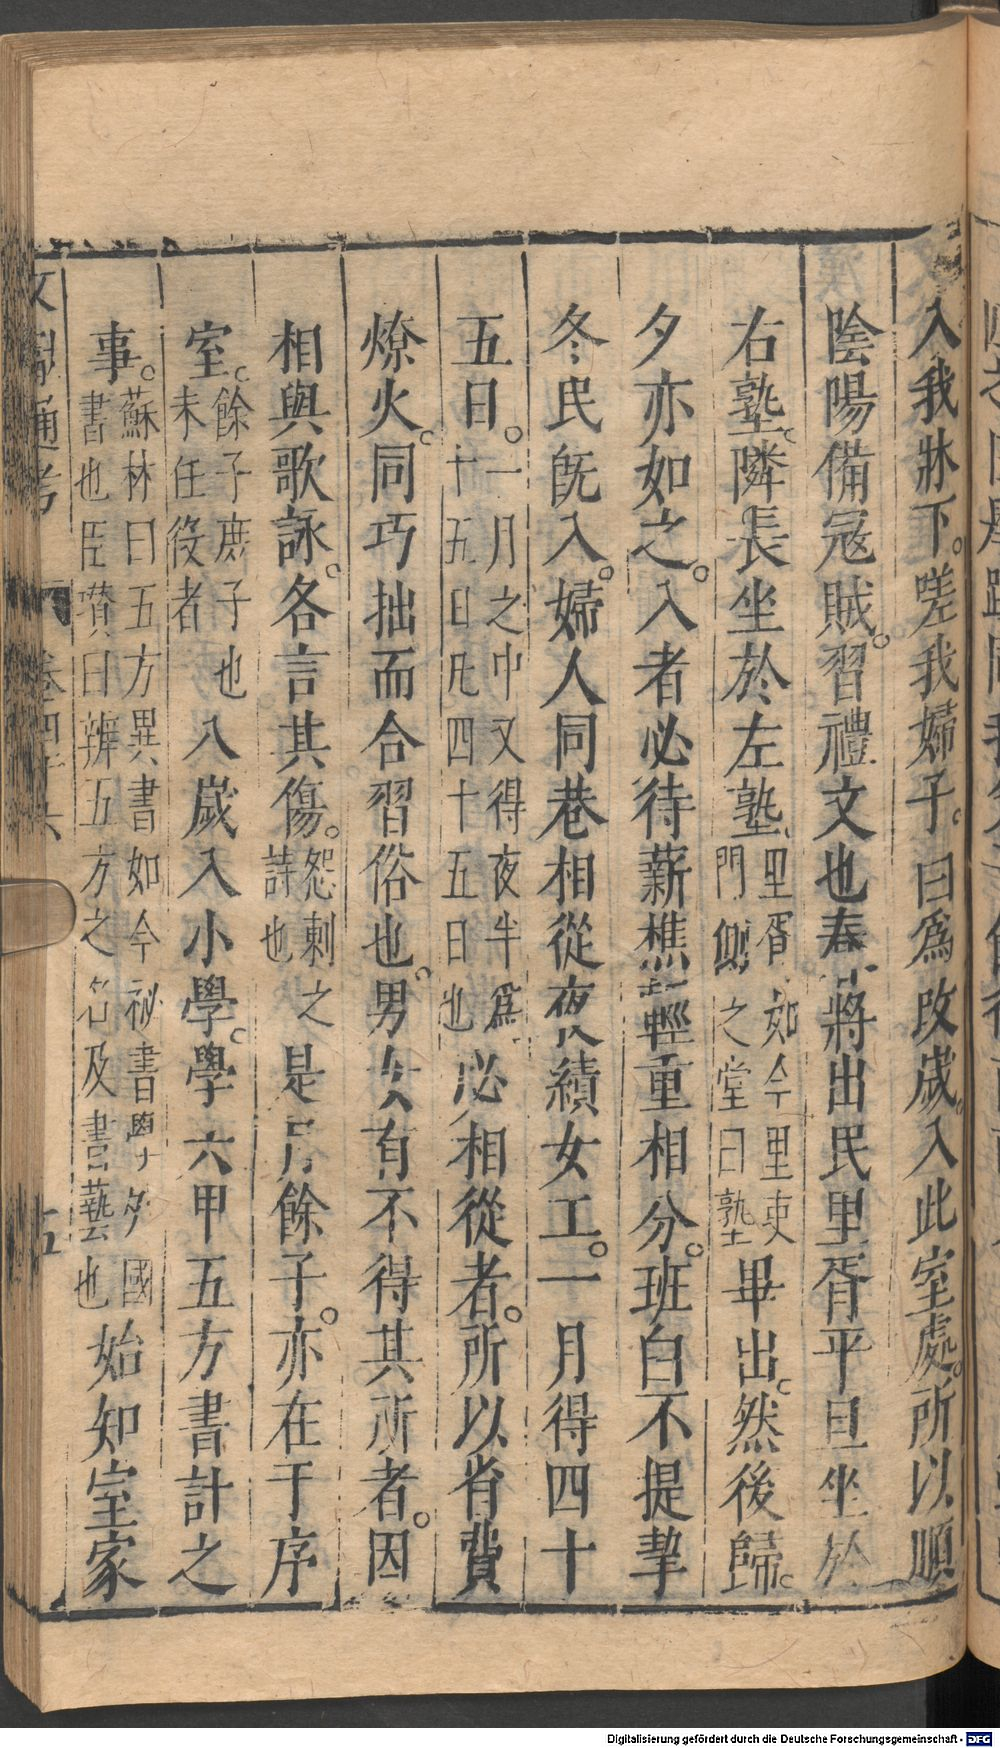 入我牀下。嗟我婦子。曰爲改歲。入此室處。所以順
陰陽備寇賊。習禮文也春將出民里胥平旦坐於
右塾。隣長坐於左塾、里胥如今里吏門側之堂曰塾畢出。然後歸。
夕亦如之。入者必待薪樵輕重相分。班白不提挈
冬民旣入。婦人同巷相從夜績女工。一月得四十
五日。一月之中又得夜半爲十五日凡四十五日也必相從者。所以省費
燎火。同巧拙而合習俗也。男女有不得其所者。因
相與歌詠。各言其傷。怨刺之詩也是月餘子。亦在于序
室。餘子庶子也未任役者八歲入小學。學六甲五方書計之
事。蘇林曰五方異書如今祕書學外國書也臣瓚曰辨五方之名及書藝也始知室家
文獻通考 卷四十六 十五
Digitalisierung gefördert durch die Deutsche Forschungsgemeinschaft - DFG